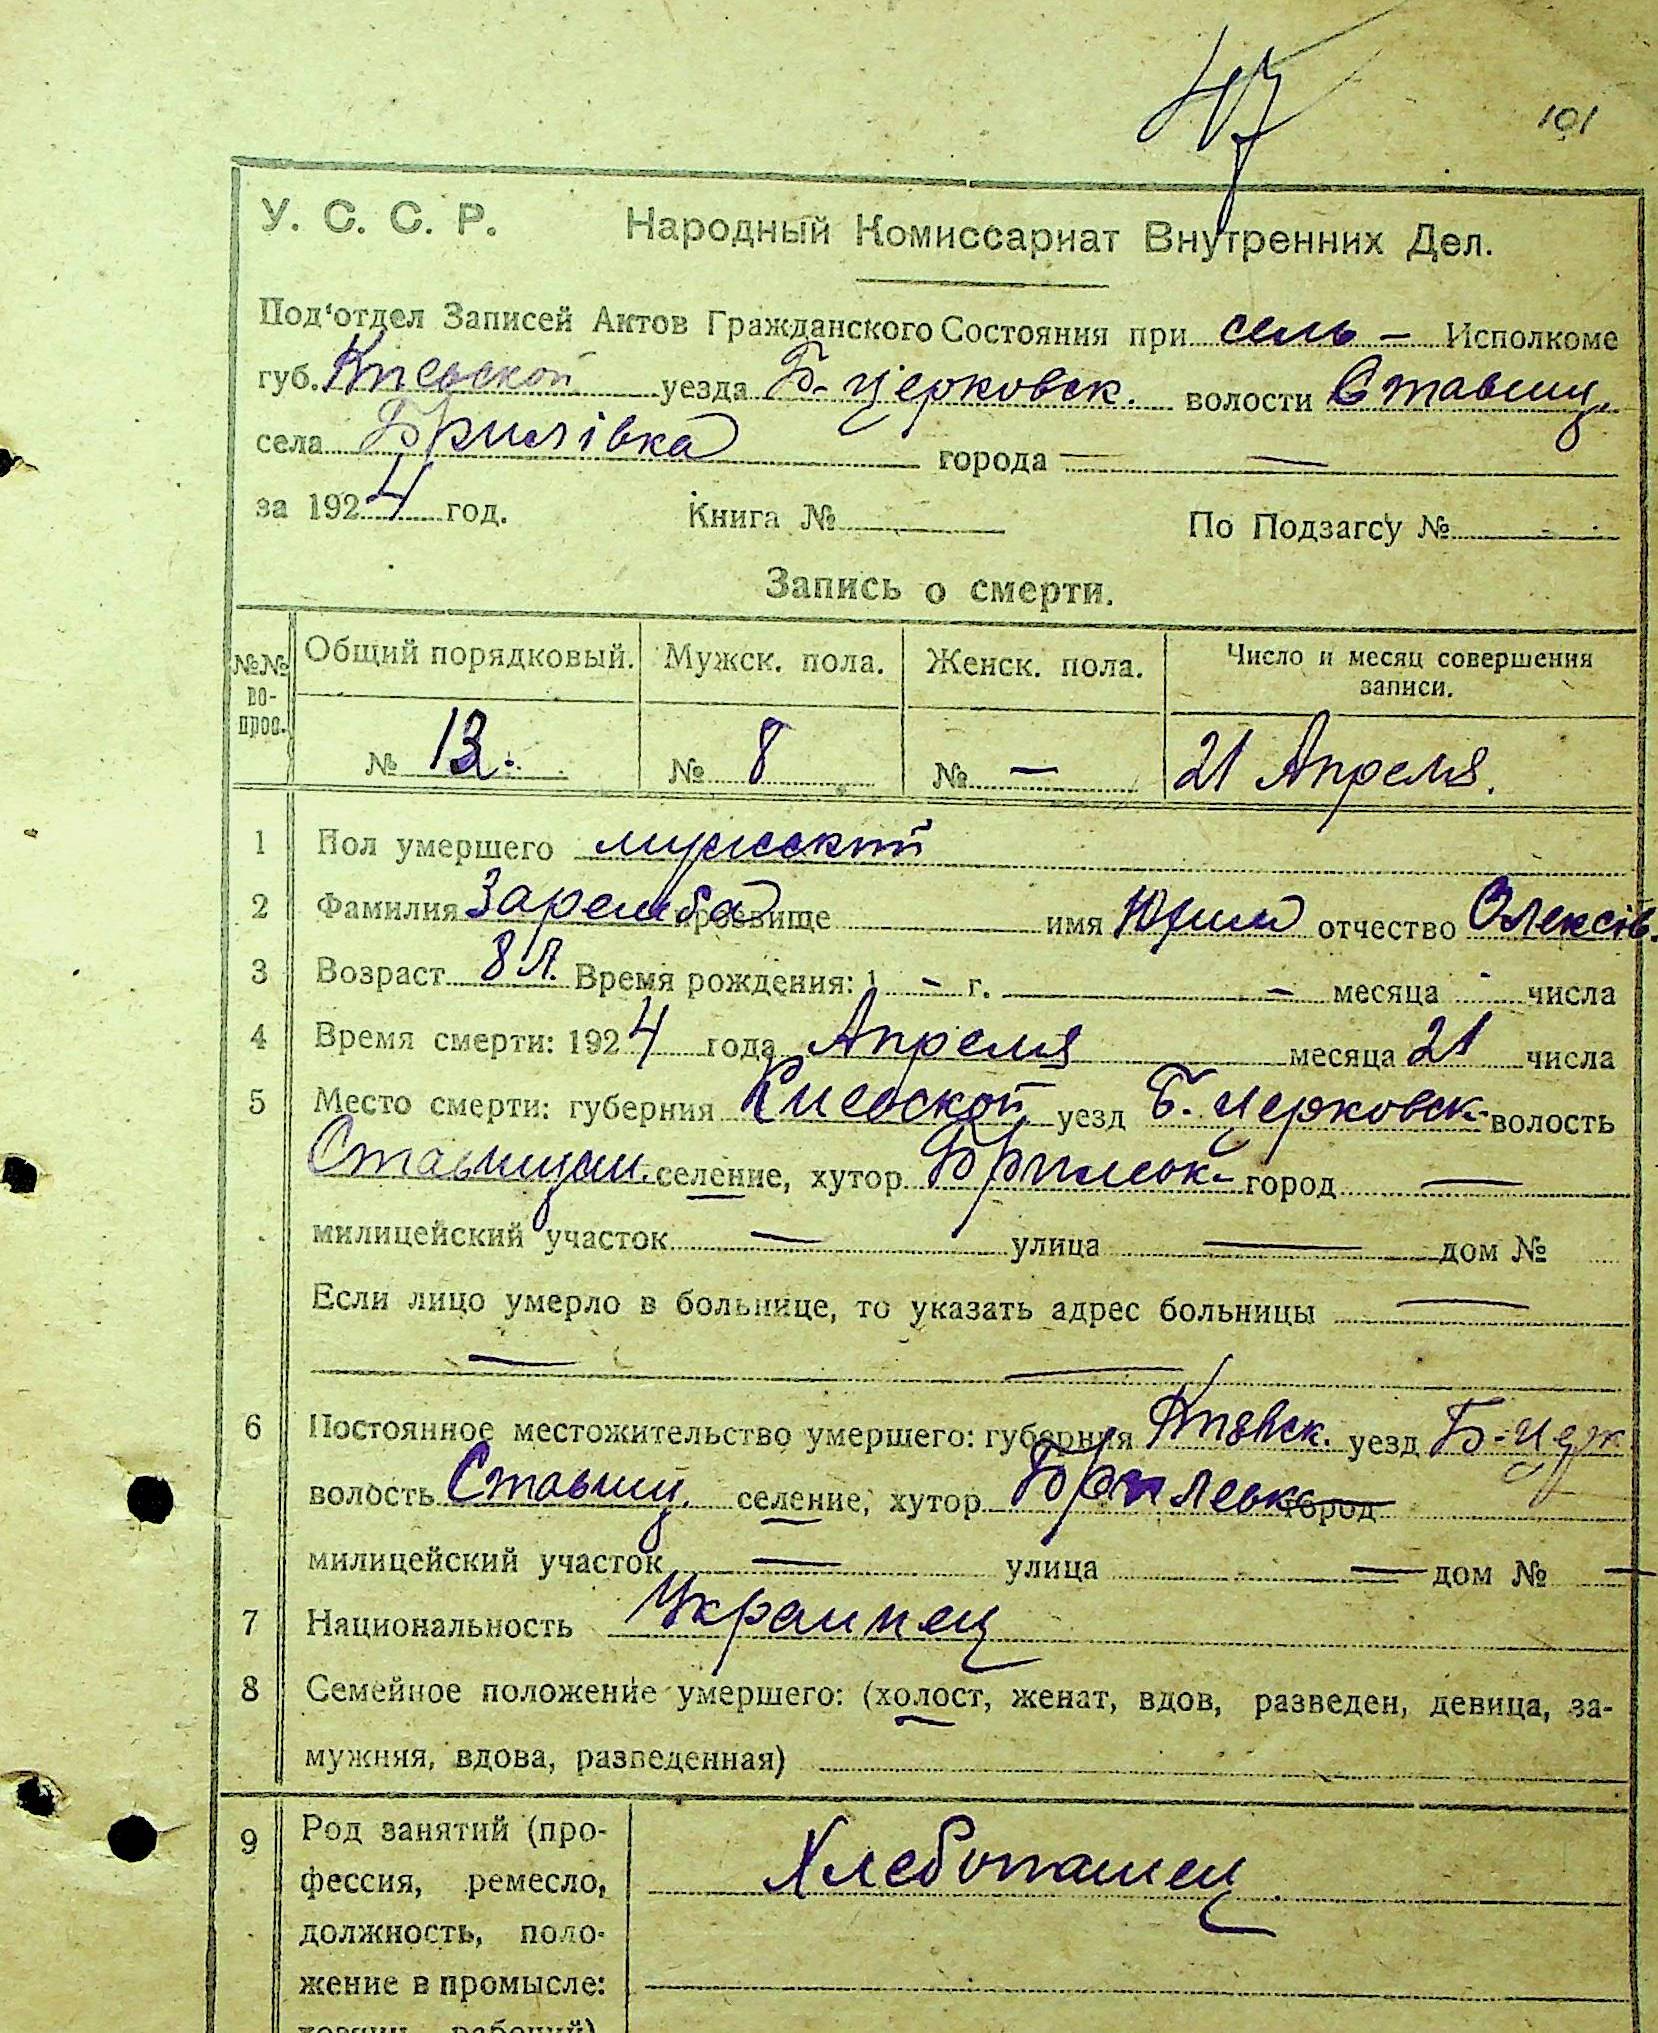 47
101
У. С. С. Р. Народный Комиссариат Внутренних Дел.
Под'отдел Записей Актов Гражданского Состояния при сель - Исполкоме
губ. Киевской уезда Б-церковск. волости Ставищ.
села Брилівка города —
за 1924 год. Книга № По Подзагсу №
Запись о смерти.
№№ во-прос. Общий порядковый. Мужск. пола. Женск. пола. Число и месяц совершения записи.
№ 13. № 8 № — 21 Апреля.
1 Пол умершего мужской
2 Фамилия Заремба прозвище имя Юхим отчество Олексів.
3 Возраст 8 л. Время рождения: 1 - г. - месяца - числа
4 Время смерти: 1924 года Апреля месяца 21 числа
5 Место смерти: губерния Киевской уезд Б. Церковск- волость
селение, хутор город —
милицейский участок — улица — дом №
Если лицо умерло в больнице, то указать адрес больницы —
— —
6 Постоянное местожительство умершего: губерния уезд
волость Ставищ. селение, хутор город
милицейский участок — улица — дом № —
7 Национальность Украинец
8 Семейное положение умершего: (холост, женат, вдов, разведен, девица, за-
мужняя, вдова, разведенная)
9 Род занятий (про-
фессия, ремесло, Хлебопашец
должность, поло-
жение в промысле:
хозяин, рабочий)